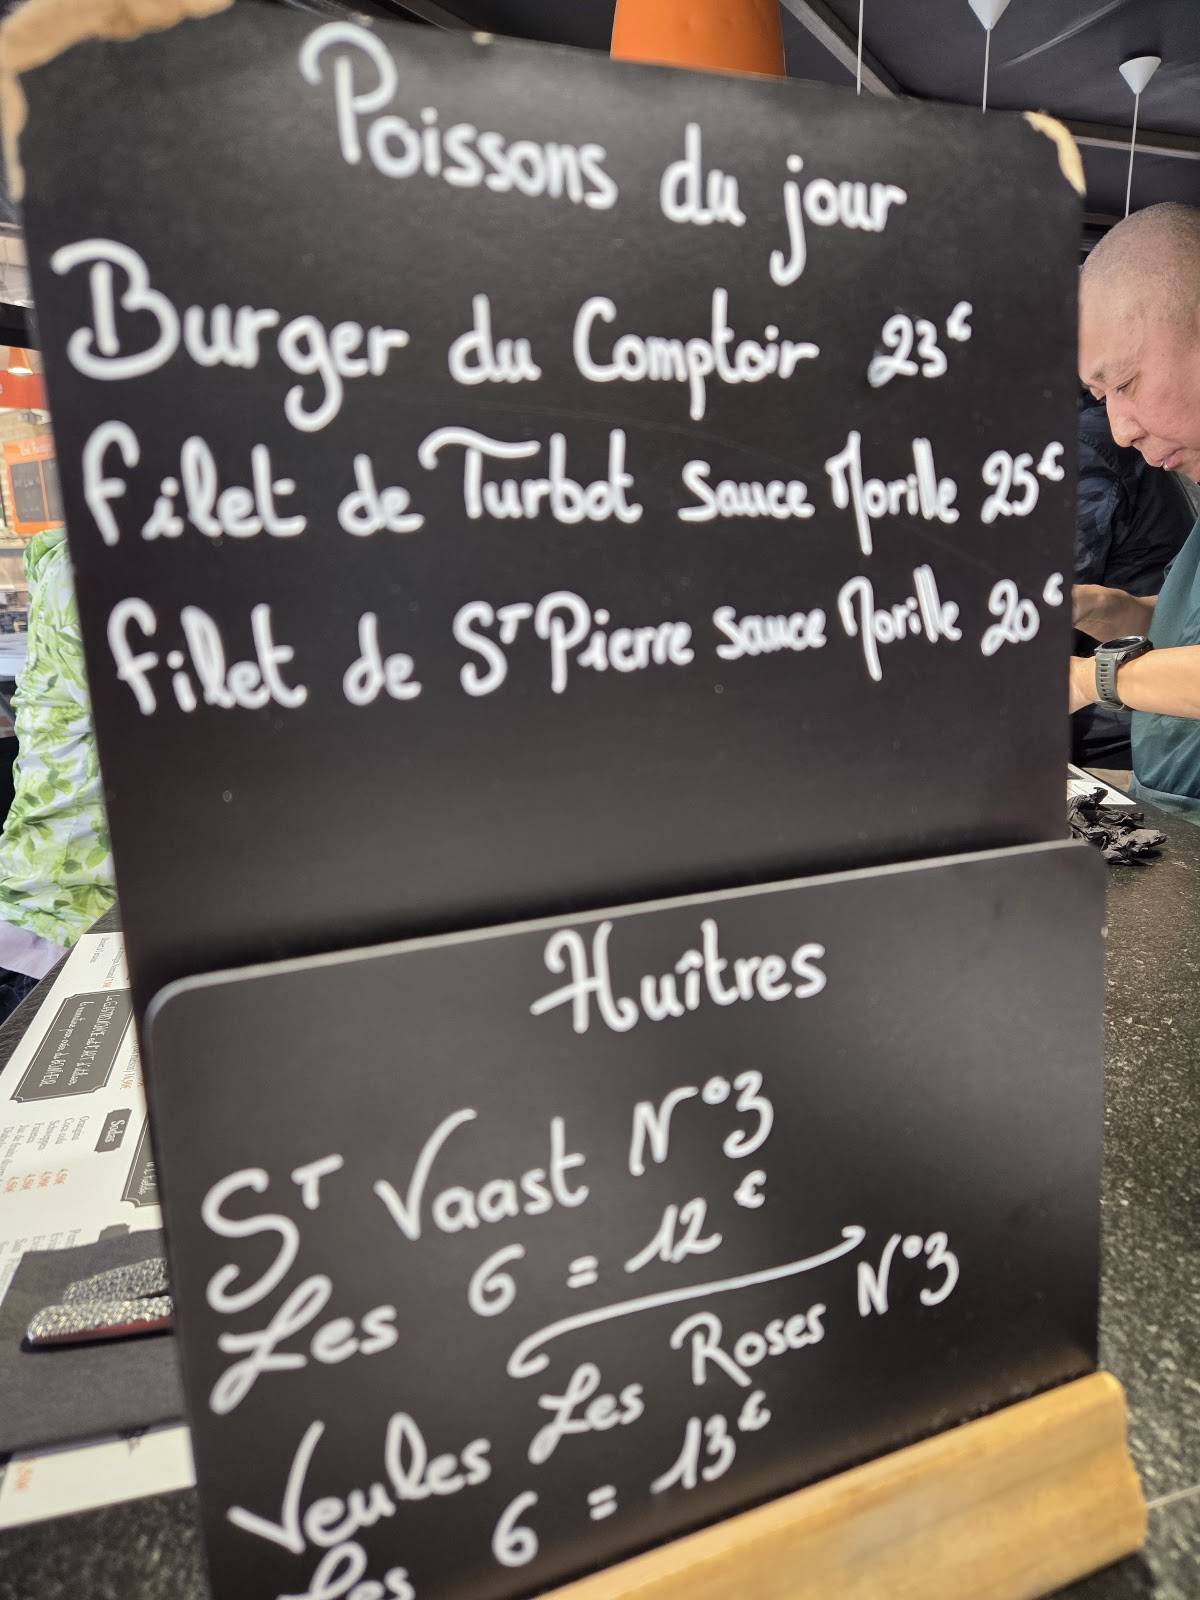 Poissons du jour
Burger du Comptoir 23€
Filet de Turbot Sauce Morille 25€
Filet de ST Pierre Sauce Morille 20€
Huîtres
ST Vaast N°3
Les 6 = 12€
Veules Les Roses N°3
Les 6 = 13€
Sodas